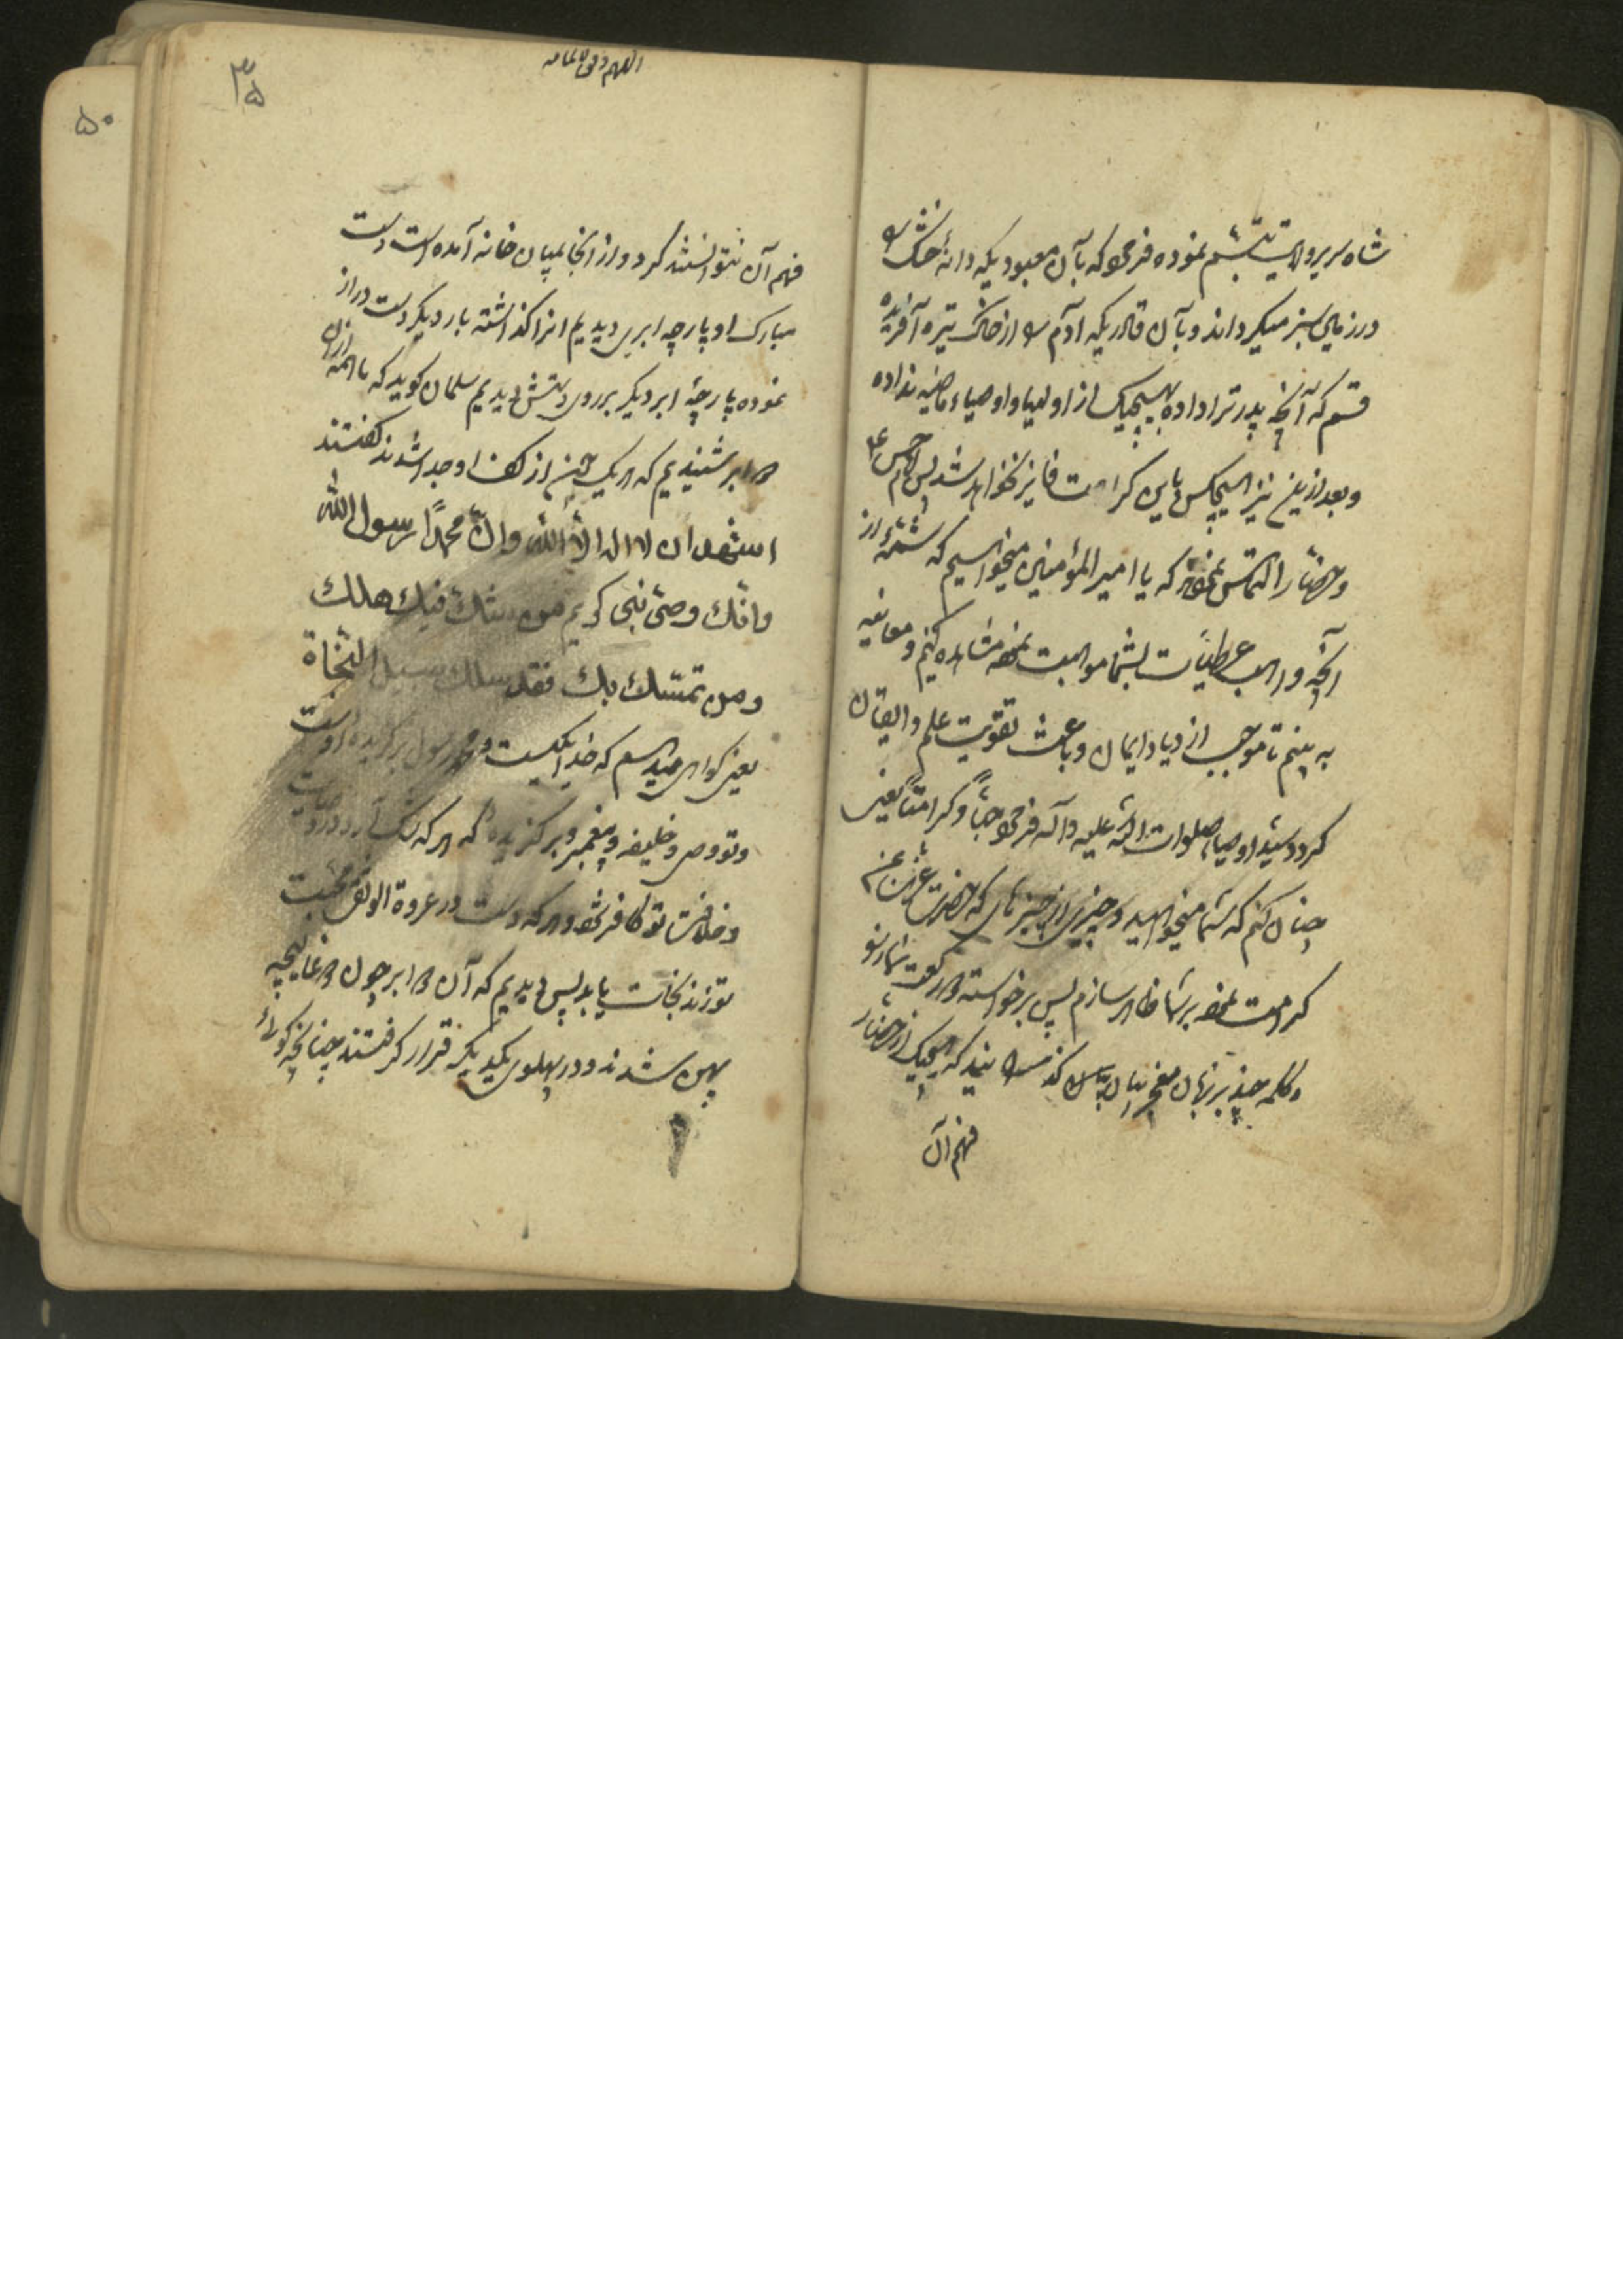 شاه سریر ولایت تبسم نموده فرمود که بآن معبودیکه دانهٔ خشک را
در زمین سبز میکرداند و بآن قادریکه آدم را از خاک تیره آفریده
قسم که آنچه پدر ترا داده بهیچیک از اولیا و اوصیاء ماضیه نداده
و بعد ازین نیز هیچکس باین کرامت فایز نخواهد شد پس امام حسن ع
و حضار التماس نمودند که یا امیر المؤمنین میخواهیم که شمهٔ از
آنچه واهب عطیات بشما موهبت نموده مشاهده کنیم و معاینه
به بینم تا موجب ازدیاد ایمان و باعث تقویت علم و ایقان
کردد سید اوصیا صلوات الله علیه و آله فرمود حباً و کرامتاً یعنی
چنان کنم که شما میخواهید و چیزی از چیزهای که حضرت عزت بمن
کرامت نموده بر شما ظاهر سازم پس برخواسته دو رکعت نماز
و کلمه چند بر زبان معجز بیان کذرانید که هیچیک از حضار
فهم آن
۳۵
۵۰
فهم آن نتوانستند کرد و از انجا بمیان خانه آمده است دست
مبارک او پارچه ابری دیدیم انرا کذاشته بار دیکر دست دراز
نموده پارچهٔ ابر دیکر بر روی دستش دیدیم سلمان کوید که ما همه از آن
دو ابر شنیدیم که هر یک از کف او جدا شدند کفتند
اشهد ان لا اله الا الله وان محمدًا رسول الله
وانّك وصیّ نبی کریم من شك فیك هلك
ومن تمسّك بك فقد سلك سبیل النّجاة
یعنی کواهی میدهم که خدا یکیست و محمد رسول برکزیده اوست
و تو وصی و خلیفه پیغمبر برکزیدهٔ که هر که شک آرد در وصایت
و خلافت تو کافر شود و هر که دست در عروة الوثقی محبت
تو زند نجات یابد پس دیدیم که آن دو ابر چون دو غالیچه
پهن شدند و در پهلوی یکدیکر قرار کرفتند چنانچه کویا